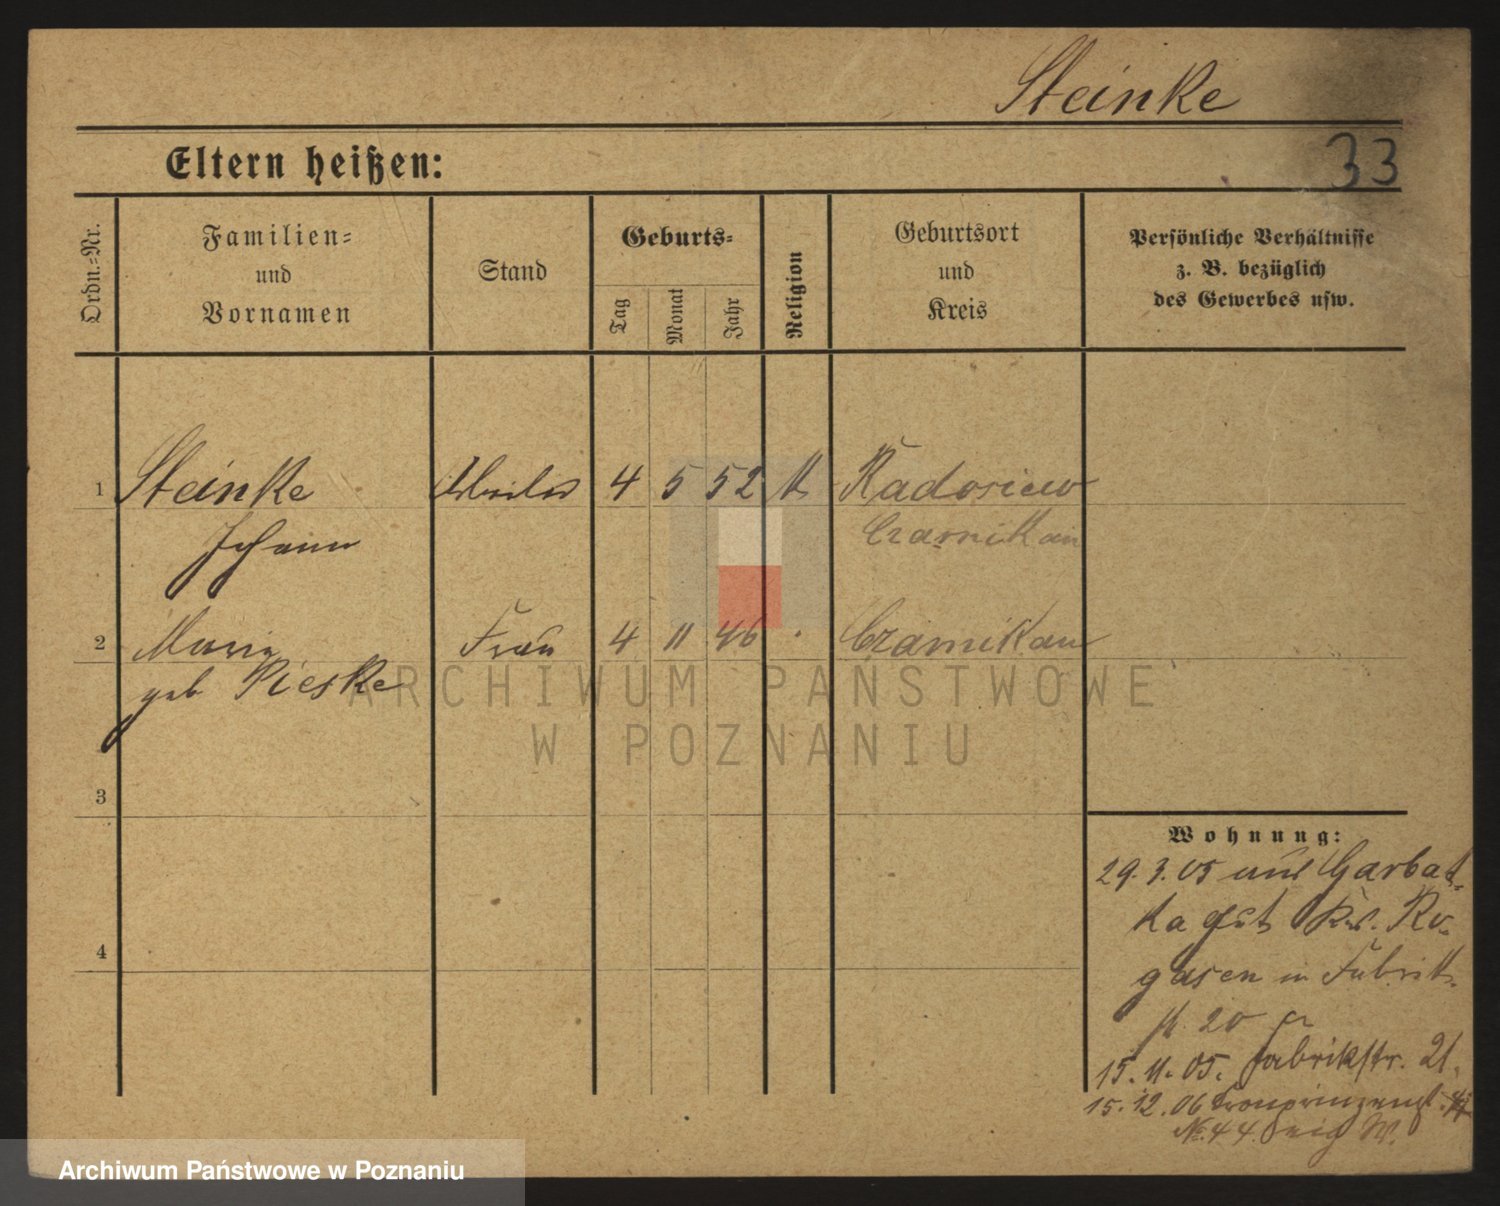 Steinke
33
Eltern heißen:
Ordn.-Nr.
Familien-
und
Vornamen
Stand
Geburts-
Tag
Monat
Jahr
Religion
Geburtsort
und
Kreis
Persönliche Verhältnisse
z. B. bezüglich
des Gewerbes usw.
1 Steinke 4 5 52 k Radosiew
Johann Czarnikau
2 Maria Frau 4 11 46 Czarnikau
geb Pieske
3
4
Wohnung:
29.3.05 aus Garbat-
ka gut Krs. Ro-
gasen in Fabrik-
st. 20
15.11.05. Fabrikstr. 21.
15.12.06 Kronprinzenst.
No. 44.
ARCHIWUM PAŃSTWOWE
W POZNANIU
Archiwum Państwowe w Poznaniu